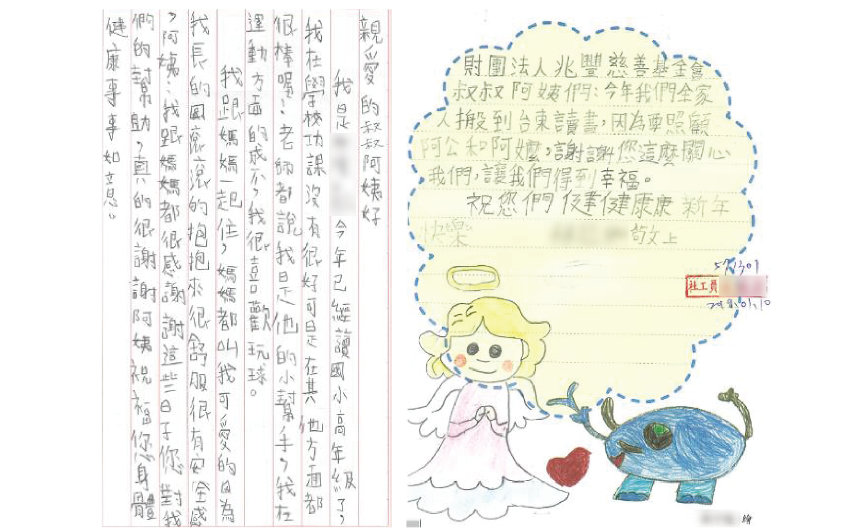 親愛的叔叔阿姨好
我是 今年已經讀國小高年級了,
我在學校功課沒有很好可是在其他方面都
很棒喔!老師都說我是他的小幫手,我在
運動方面的成不,我很喜歡玩球。
我跟媽媽一起住,媽媽都叫我可愛的因為
我長的圓滾滾的抱抱來很舒服很有安全感
,阿姨:我跟媽媽都很感謝謝這些日子您對我
們的幫助,真的很謝謝阿姨祝福您身體
健康事事如意。
財團法人兆豐慈善基金會
叔叔阿姨們:今年我們全家
人搬到台東讀書,因為要照顧
阿公和阿嬤,謝謝您這麼關心
我們,讓我們得到幸福。
祝您們健健康康新年
快樂
敬上
社工員
繪